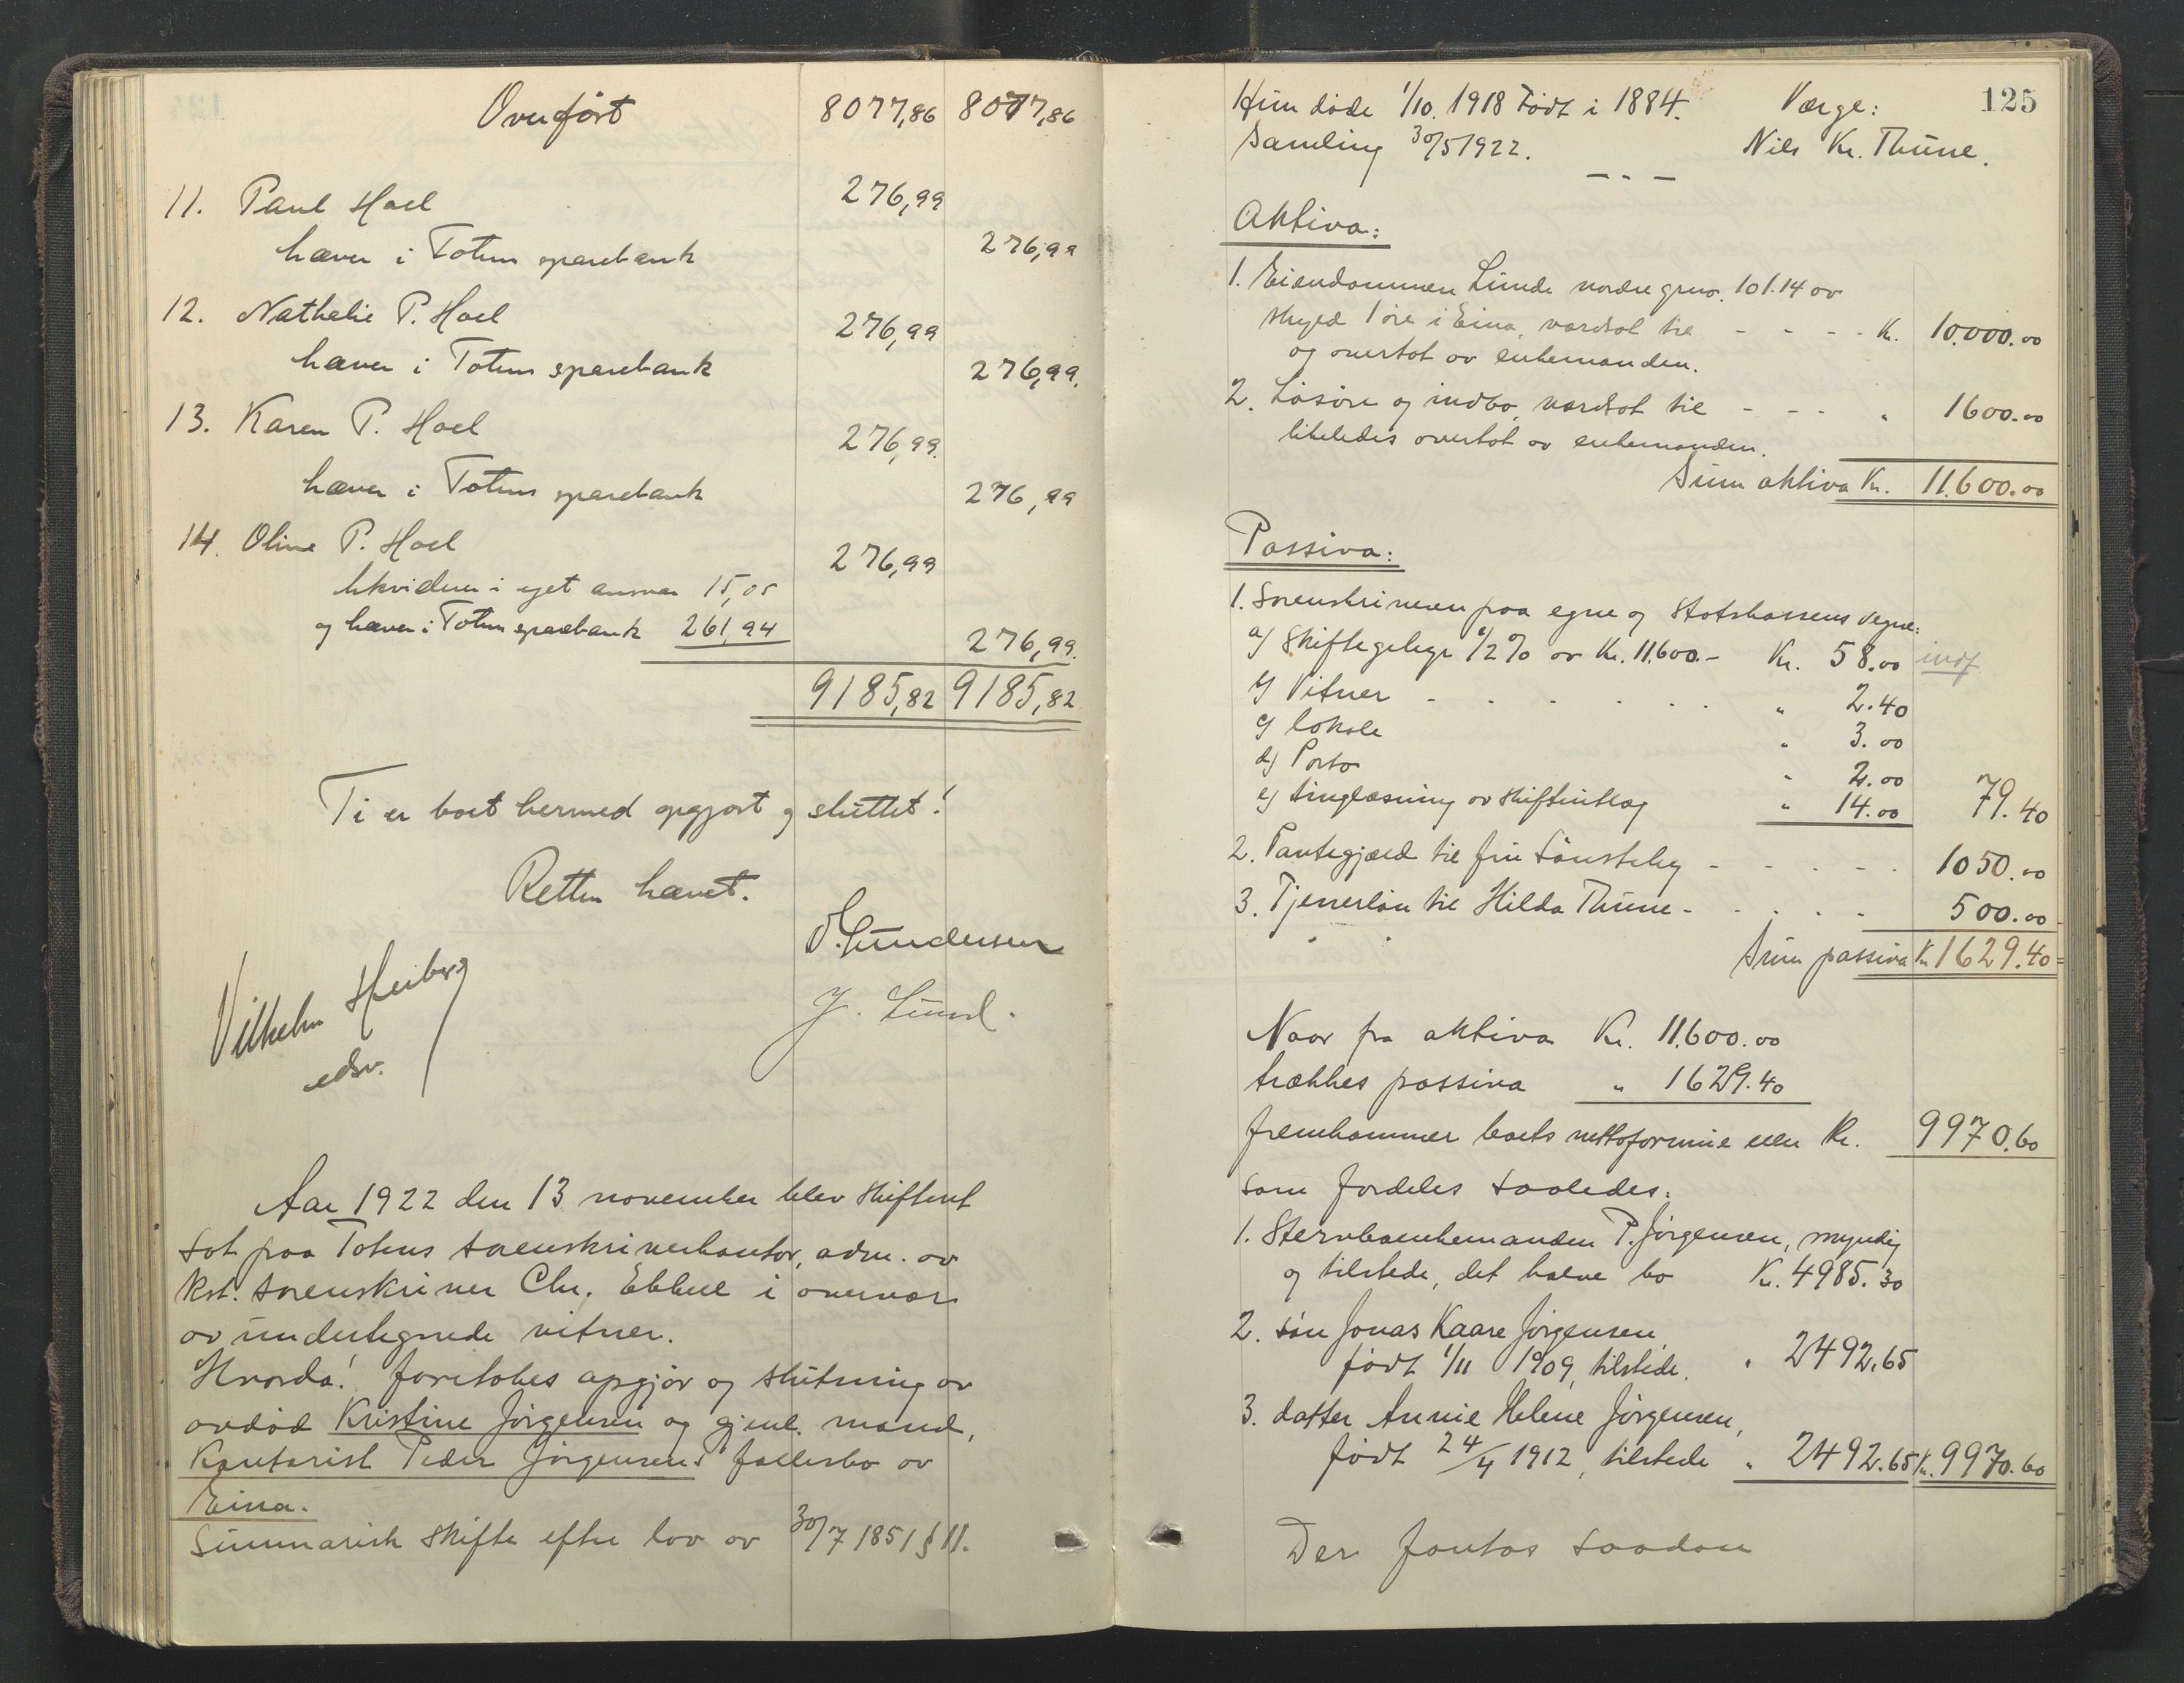 Overført 8077,86 8077,86
11. Paul Hoel 276,99
hæver i Totens sparebank 276,99
12. Nathalie P. Hoel 276,99
hæver i Totens sparebank 276,99.
13. Karen P. Hoel 276,99.
hæver i Totens sparebank 276,99
14. Oline P. Hoel 276,99
likviderer i eget ansvar 15,05
og hæver i Totens sparebank 261,94 276,99.
9185,82 9185,82
Ti er boet hermed opgjort og sluttet!
Retten hævet.
Gundersen
Vilhelm Heiberg J. Lund.
edsv.
Aar 1922 den 13 november blev skifteret
sat paa Totens sorenskriverkontor, adm. av
kst. sorenskriver Chr. Ebbell i overvær
av undertegnede vitner.
Hvorda! foretokes opgjør og slutning av
avdød Kristine Jørgensen og gjenl. mand,
Kontorist Peder Jørgensens fællesbo av
Eina.
Summarisk skifte efter lov av 30/7 1851 § 11.
125
Hun døde 1/10. 1918 Født i 1884. Verge:
Samling 30/5 1922. Nils Kr. Thune.
Aktiva:
1. Eiendommen Lunde nordre grno. 101.14 av
skyld 1 øre i Eina, værdsat til - - - - Kr. 10.000.00
og overtat av enkemanden.
2. Løsøre og indbo, værdsat til - - - " 1600.00
likeledes overtat av enkemanden.
Sum aktiva Kr. 11.600.00
Passiva:
1. Sorenskriveren paa egne og Statskassens vegne:
a) Skiftegebyr 1/2 % av Kr. 11.600.- Kr. 58.00
b) Vitner - - - - - - " 2.40
c) lokale " 3.00
d) Porto " 2.00
e) tinglæsning av skifteutlæg " 14.00 79.40
2. Pantegjæld til fru Sønsteby - - - - - 1050.00
3. Tjenerløn til Hilda Thune - - - - - 500.00
Sum passiva Kr. 1629.40
Naar fra aktiva Kr. 11.600.00
trækkes passiva " 1629.40
fremkommer boets nettoformue eller Kr. 9970.60
som fordeles saaledes:
1. Stervboenkemanden P. Jørgensen, myndig
og tilstede, det halve bo Kr. 4985.30
2. søn Jonas Kaare Jørgensen,
født 1/11 1909, tilstede. " 2492.65
3. datter Annie Helene Jørgensen,
født 24/4 1912, tilstede " 2492.65 Kr. 9970.60
Der fantas saadan